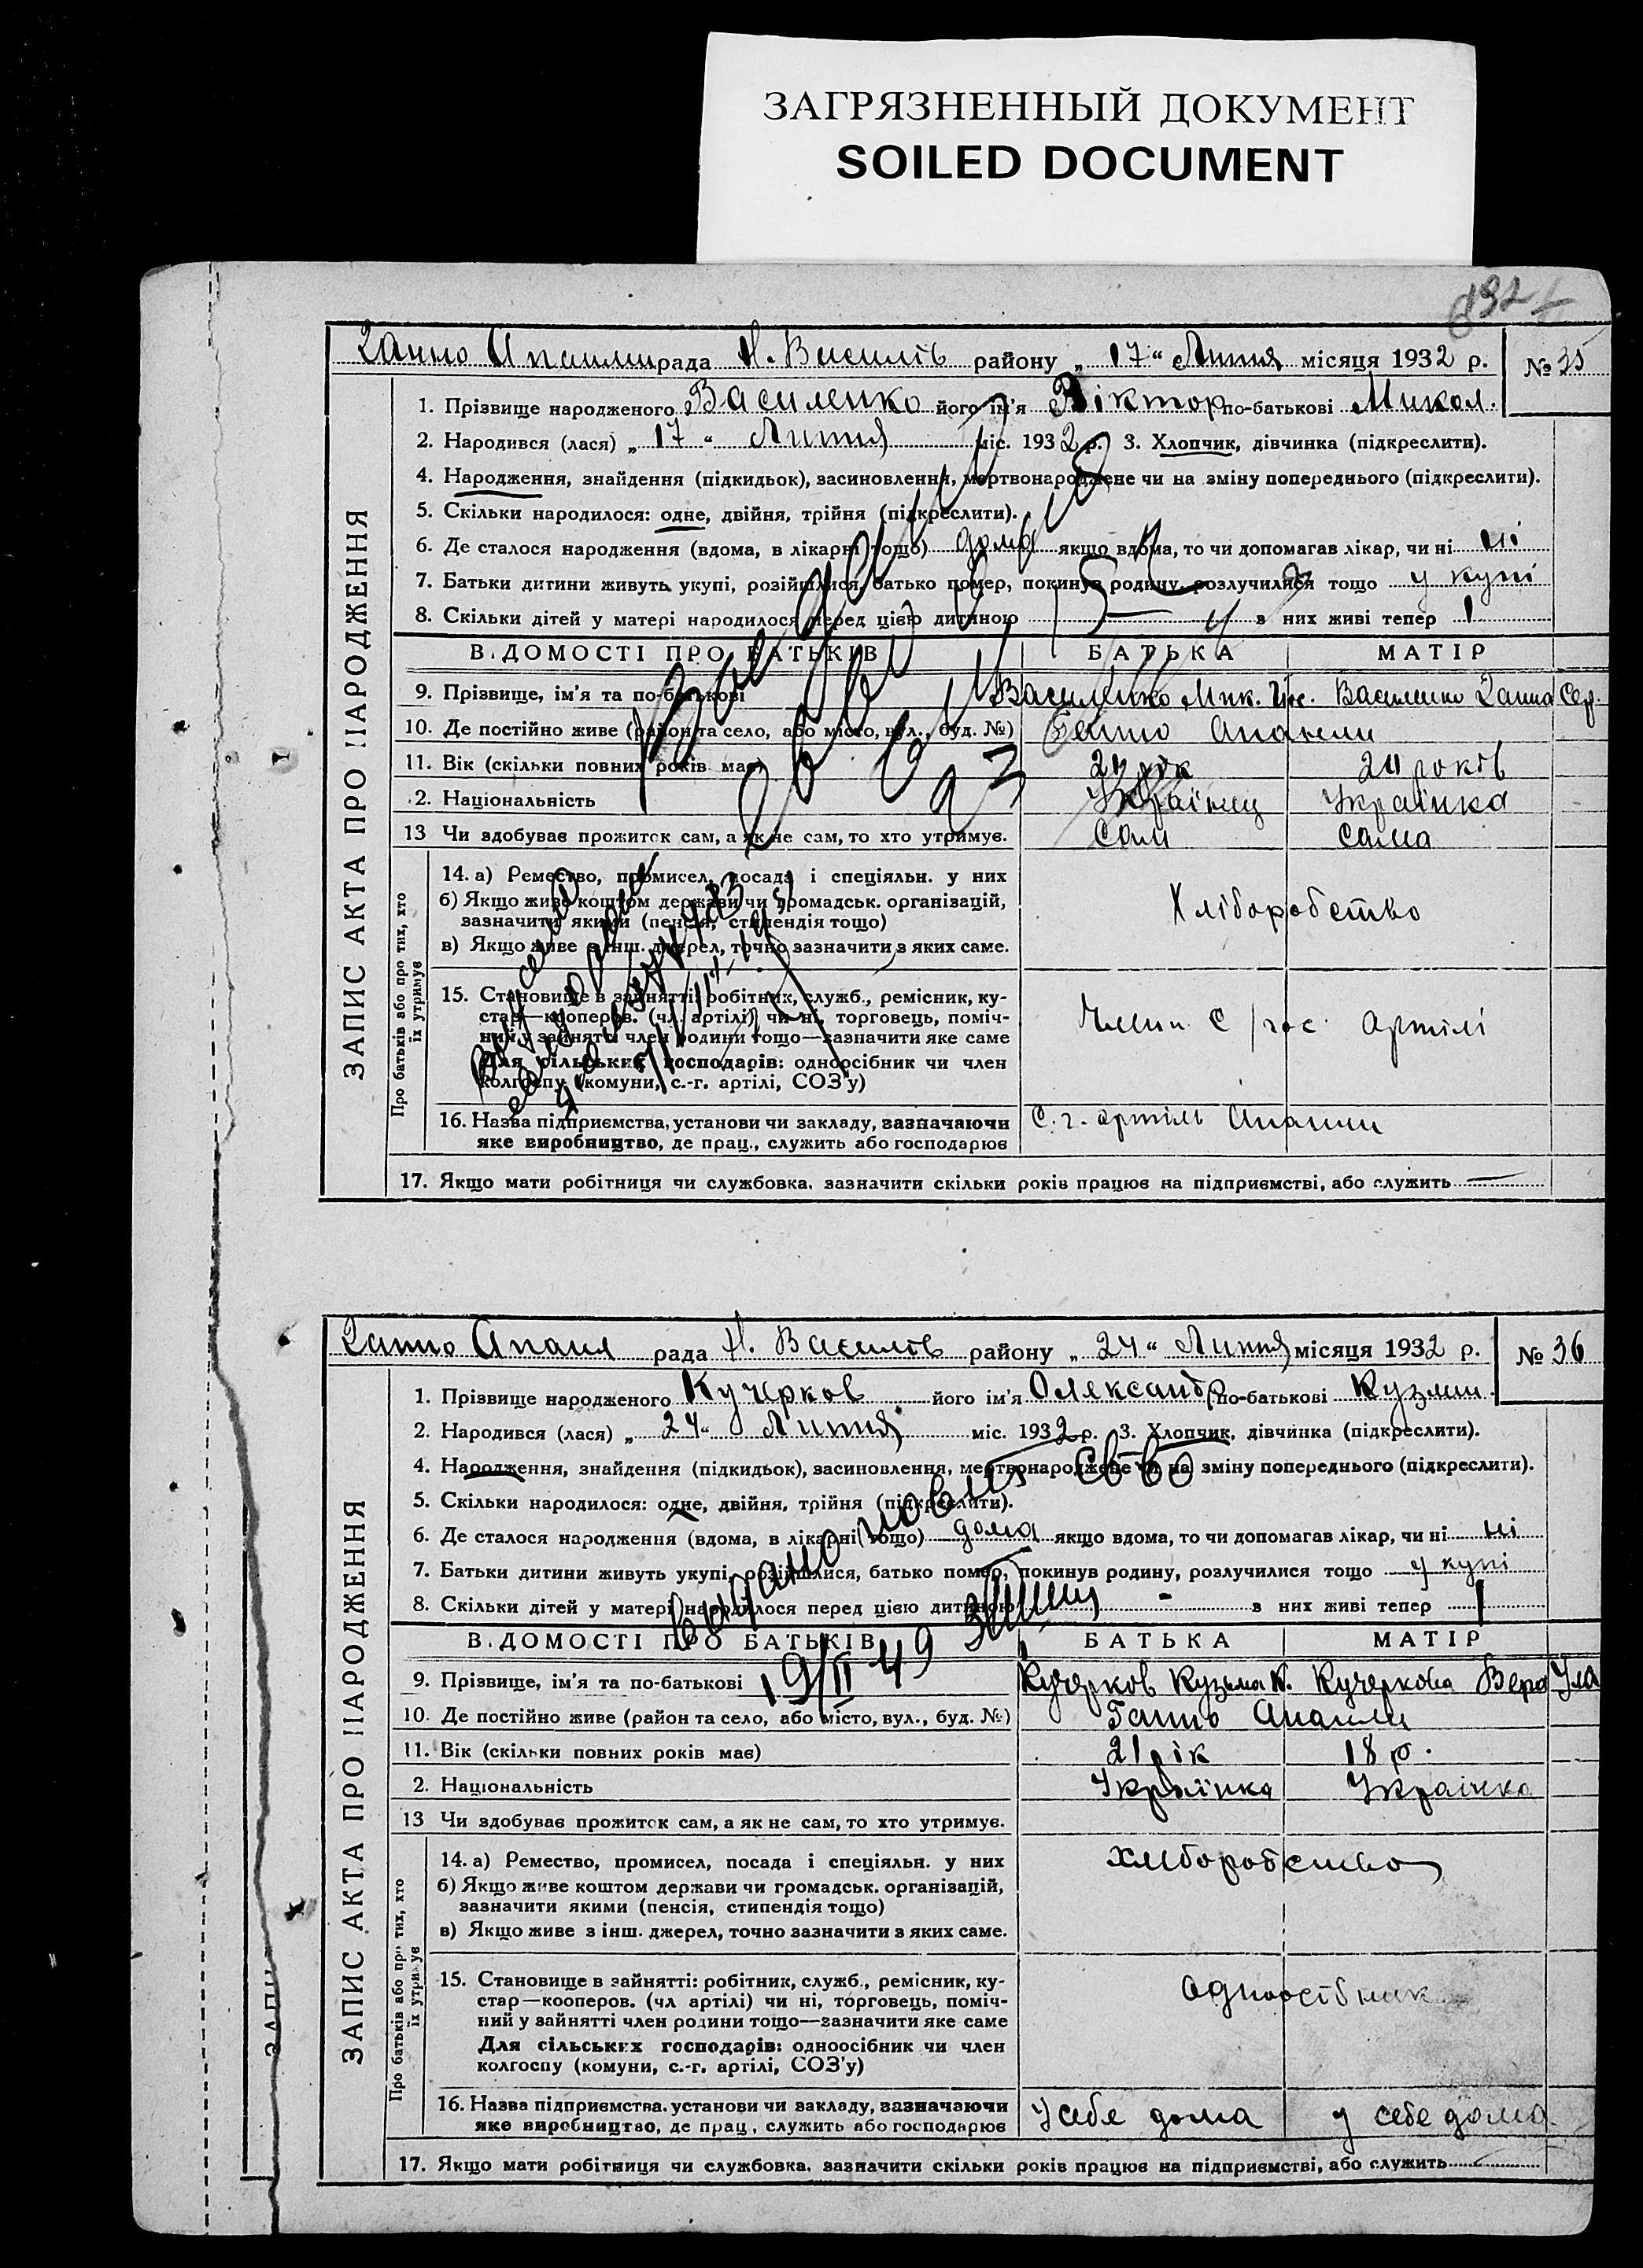 ЗАГРЯЗНЕННЫЙ ДОКУМЕНТ
SOILED DOCUMENT
рада Н. Василів району „ 17 “ Липня місяця 1932 р. № 35
1. Прізвище народженого Василенко його ім'я Віктор по-батькові Микол.
2. Народився (лася) „ 17 “ Липня міс. 1932 р. 3. Хлопчик, дівчинка (підкреслити).
4. Народження, знайдення (підкидьок), засиновлення, мертвонароджене чи на зміну попереднього (підкреслити).
5. Скільки народилося: одне, двійня, трійня (підкреслити).
6. Де сталося народження (вдома, в лікарні тощо) дома якщо вдома, то чи допомагав лікар, чи ні ні
7. Батьки дитини живуть укупі, розійшлися, батько помер, покинув родину, розлучилися тощо у купі
8. Скільки дітей у матері народилося перед цією дитиною з них живі тепер 1
В.ДОМОСТІ ПРО БАТЬКІВ БАТЬКА МАТІР
9. Прізвище, ім'я та по-батькові Василенко Мик. Василенко Ганна
10. Де постійно живе (район та село, або місто, вул., буд. №) Ганно
11. Вік (скільки повних років має) років
2. Національність Українец Українка
13 Чи здобуває прожиток сам, а як не сам, то хто утримує. Сам Сама
14. а) Ремество, промисел, посада і спеціяльн. у них Хліборобство
б) Якщо живе коштом держави чи громадськ. організацій,
зазначити якими (пенсія, стипендія тощо)
в) Якщо живе з інш. джерел, точно зазначити з яких саме.
15. Становище в зайнятті: робітник, служб., ремісник, ку-
стар—кооперов. (чл. артілі) чи ні, торговець, поміч-
ний у зайнятті член родини тощо—зазначити яке саме
Для сільських господарів: одноосібник чи член
колгоспу (комуни, с.-г. артілі, СОЗ'у)
Член с/гос. артілі
16. Назва підприємства, установи чи закладу, зазначаючи
яке виробництво, де прац., служить або господарює
С. г. артіль
17. Якщо мати робітниця чи службовка, зазначити скільки років працює на підприємстві, або служить —
ЗАПИС АКТА ПРО НАРОДЖЕННЯ
Про батьків або про тих, хто
їх утримує
рада Н. Василів району „ 24 “ Липня місяця 1932 р. № 36
1. Прізвище народженого Кучерков його ім'я Олександр по-батькові Кузьм.
2. Народився (лася) „ 24 “ Липня міс. 1932 р. 3. Хлопчик, дівчинка (підкреслити).
4. Народження, знайдення (підкидьок), засиновлення, мертвонароджене чи на зміну попереднього (підкреслити).
5. Скільки народилося: одне, двійня, трійня (підкреслити).
6. Де сталося народження (вдома, в лікарні тощо) дома якщо вдома, то чи допомагав лікар, чи ні ні
7. Батьки дитини живуть укупі, розійшлися, батько помер, покинув родину, розлучилися тощо у купі
8. Скільки дітей у матері народилося перед цією дитиною - з них живі тепер 1
Видано повт. св-во
19/II 49
В.ДОМОСТІ ПРО БАТЬКІВ БАТЬКА МАТІР
9. Прізвище, ім'я та по-батькові Кучерков Кузьма К. Кучеркова Вера
10. Де постійно живе (район та село, або місто, вул., буд. №) Ганно
11. Вік (скільки повних років має) 21 рік 18 р.
2. Національність Українка Українка
13 Чи здобуває прожиток сам, а як не сам, то хто утримує.
14. а) Ремество, промисел, посада і спеціяльн. у них хліборобство
б) Якщо живе коштом держави чи громадськ. організацій,
зазначити якими (пенсія, стипендія тощо)
в) Якщо живе з інш. джерел, точно зазначити з яких саме.
15. Становище в зайнятті: робітник, служб., ремісник, ку-
стар—кооперов. (чл артілі) чи ні, торговець, поміч-
ний у зайнятті член родини тощо—зазначити яке саме
Для сільських господарів: одноосібник чи член
колгоспу (комуни, с.-г. артілі, СОЗ'у)
одноосібник
16. Назва підприємства, установи чи закладу, зазначаючи
яке виробництво, де прац., служить або господарює
у себе дома у себе дома
17. Якщо мати робітниця чи службовка, зазначити скільки років працює на підприємстві, або служить
ЗАПИС АКТА ПРО НАРОДЖЕННЯ
Про батьків або про тих, хто
їх утримує